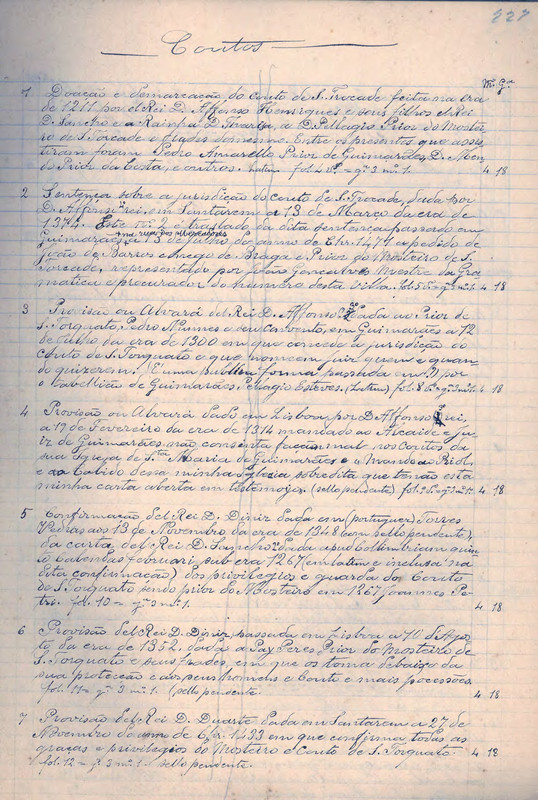 227
Coutos
M. G.ª
1 Doação e demarcação do couto de S. Trocade feita na era
de 1211 por el Rei D. Affonso Henriques e seus filhos el Rei
D. Sancho e a Rainha D. Tharêja, a D. Pellagio Prior do Mostei-
ro de S. Torcade e frades do mesmo. Entre os presentes que assis-
tiram foram Pedro Amarello Prior de Guimarães, D. Men-
do Prior da Costa, e outros. fol. 2 vº = gª 3 m. 1. 4 18
2 Sentença sobre a jurisdição do couto de S. Trocade, dada por
D. Affonso rei, em Santarem a 13 de Março da era de
1374. Este nº 2 é traslado da dita sentença passado em
Guimarães, a 13 de julho do anno de Chr. 1471 a pedido de
João de Barros conego de Braga e Prior do Mosteiro de S.
Torcade, representado por João Gonçalves Mestre da Gra-
matica e procurador do numero desta Villa. fol. 5 vº = gª 3 m. 1. 4 18
3 Provisão ou Alvará del Rei D. Affonso dada ao Prior de
S. Torquato, Pedro Nunnes e seu convento, em Guimarães a 12
de julho da era de 1300 em que concede a jurisdição do
Couto de S. Torquato e que nomeem juiz quem e quan-
do quizerem. É uma publica forma passada em por
o Tabellião de Guimarães Pelagio Esteves. (Latim) fol. 8 vº = gª 3 m. 1. 4 18
4 Provisão ou Alvará dado em Lisboa por D. Affonso rei,
a 17 de Fevereiro da era de 1314 mandado ao Alcaide e Ju-
iz de Guimarães não consenta façam mal nos Coutos da
sua Igreja de S.ta Maria de Guimarães e "Mando ao
e ao Cabido dessa minha Igreja sobredita que tenão esta
minha carta aberta em testemojo. (sello pendente) fol. 9 vº = gª 3 m. 1. 4 18
5 Confirmação del Rei D. Diniz dada em (portuguez) Torres
Vedras aos 13 de Novembro da era de 1348 (com sello pendente),
da carta del Rei D. Sancho dada apud Colimbriam quin-
to calendas februarii sub era 126 (em latim e inclusa na
dita confirmação) dos privilegios e guarda do Couto
de S. Torquato sendo prior do Mosteiro em 126 Joannes Pe-
tri. fol. 10 = gª 3 m. 1. 4 18
6 Provisão del Rei D. Diniz, passada em Lisboa a 10 de Agos-
to da era de 1352, dada a Pay Peres Prior do Mosteiro de
S. Torquato e seus frades, em que os toma debaixo da
sua protecção e aos seus homens e Couto e mais possessões
fol. 11 = gª 3 m. 1. (sello pendente. 4 18
7 Provisão del Rei D. Duarte dada em Santarem a 27 de
Novembro do anno de Chr. 1433 em que confirma todas as
graças e privilegios do Mosteiro e Couto de S. Torquato. 4 18
fol. 12 = gª 3 m. 1. sello pendente.